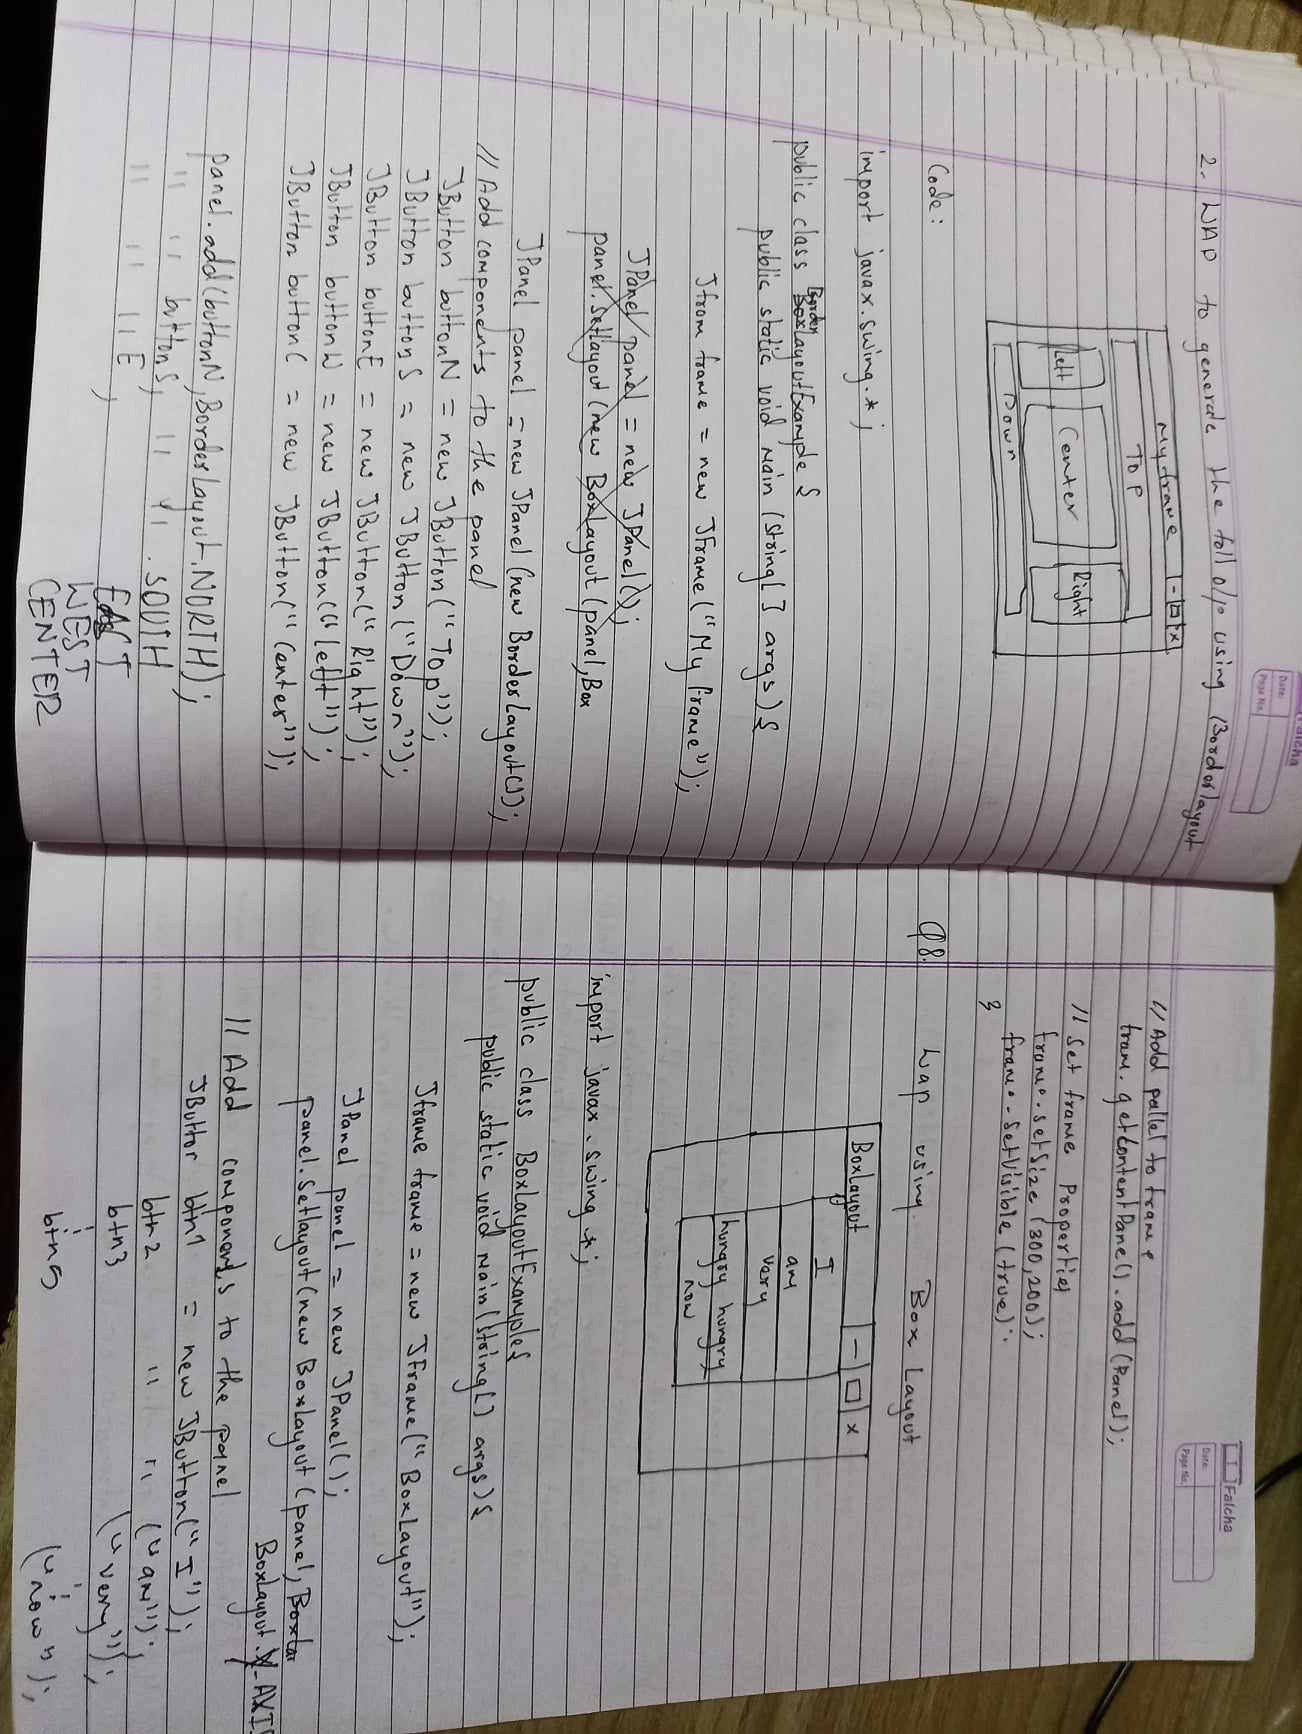 Falcha
Date:
Page No.
2. WAP to generate the foll o/p using (Borderlayout
My frame - □ x
TOP
Left Center Right
Down
Code:
import javax.swing.*;
Border
public class BoxLayoutExample {
public static void Main (String[] args) {
Jfrom frame = new JFrame("My frame");
JPanel panel = new JPanel();
panel.Setlayout(new BoxLayout(panel,Box
JPanel panel = new JPanel (new BorderLayout());
// Add components to the panel
JButton buttonN = new JButton ("Top");
JButton buttonS = new JButton ("Down");
JButton buttonE = new JButton ("Right");
JButton buttonW = new JButton("left");
JButton buttonC = new JButton("Center");
panel.add(buttonN,BorderLayout.NORTH);
" " buttonS, " " . SOUTH
" " " E, EAST
WEST
CENTER
Falcha
Date:
Page No.
// Add pallel to frame
fram. getContentPane() .add (Panel);
// set frame properties
fram.setSize (300,200);
fram.setVisible (true);
}
Q8. Wap using Box Layout
BoxLayout - □ x
I
am
very
hungry hungry
now
import javax.swing.*;
public class BoxLayoutExample{
public static void Main(String[] args) {
Jframe frame = new Jframe("BoxLayout");
JPanel panel = new JPanel();
panel.setlayout(new BoxLayout(panel, Boxlar
BoxLayout.Y-AXIS
// Add components to the panel
JButtor btn1 = new JButton("I");
btn2 " " ("am");
btn3 ("very");
btn5 ("now");